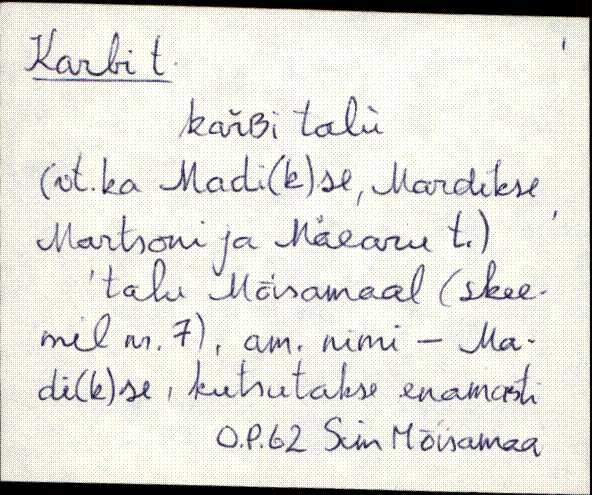 Karbi t.
kar̆Bi talù
(vt. ka Madi(k)se, Mardikse,
Martsoni ja Mäearu t.)
'talu Mõisamaal (skee-
mil nr. 7), am. nimi – Ma-
di(k)se, kutsutakse enamasti
O.P.62 Sim Mõisamaa